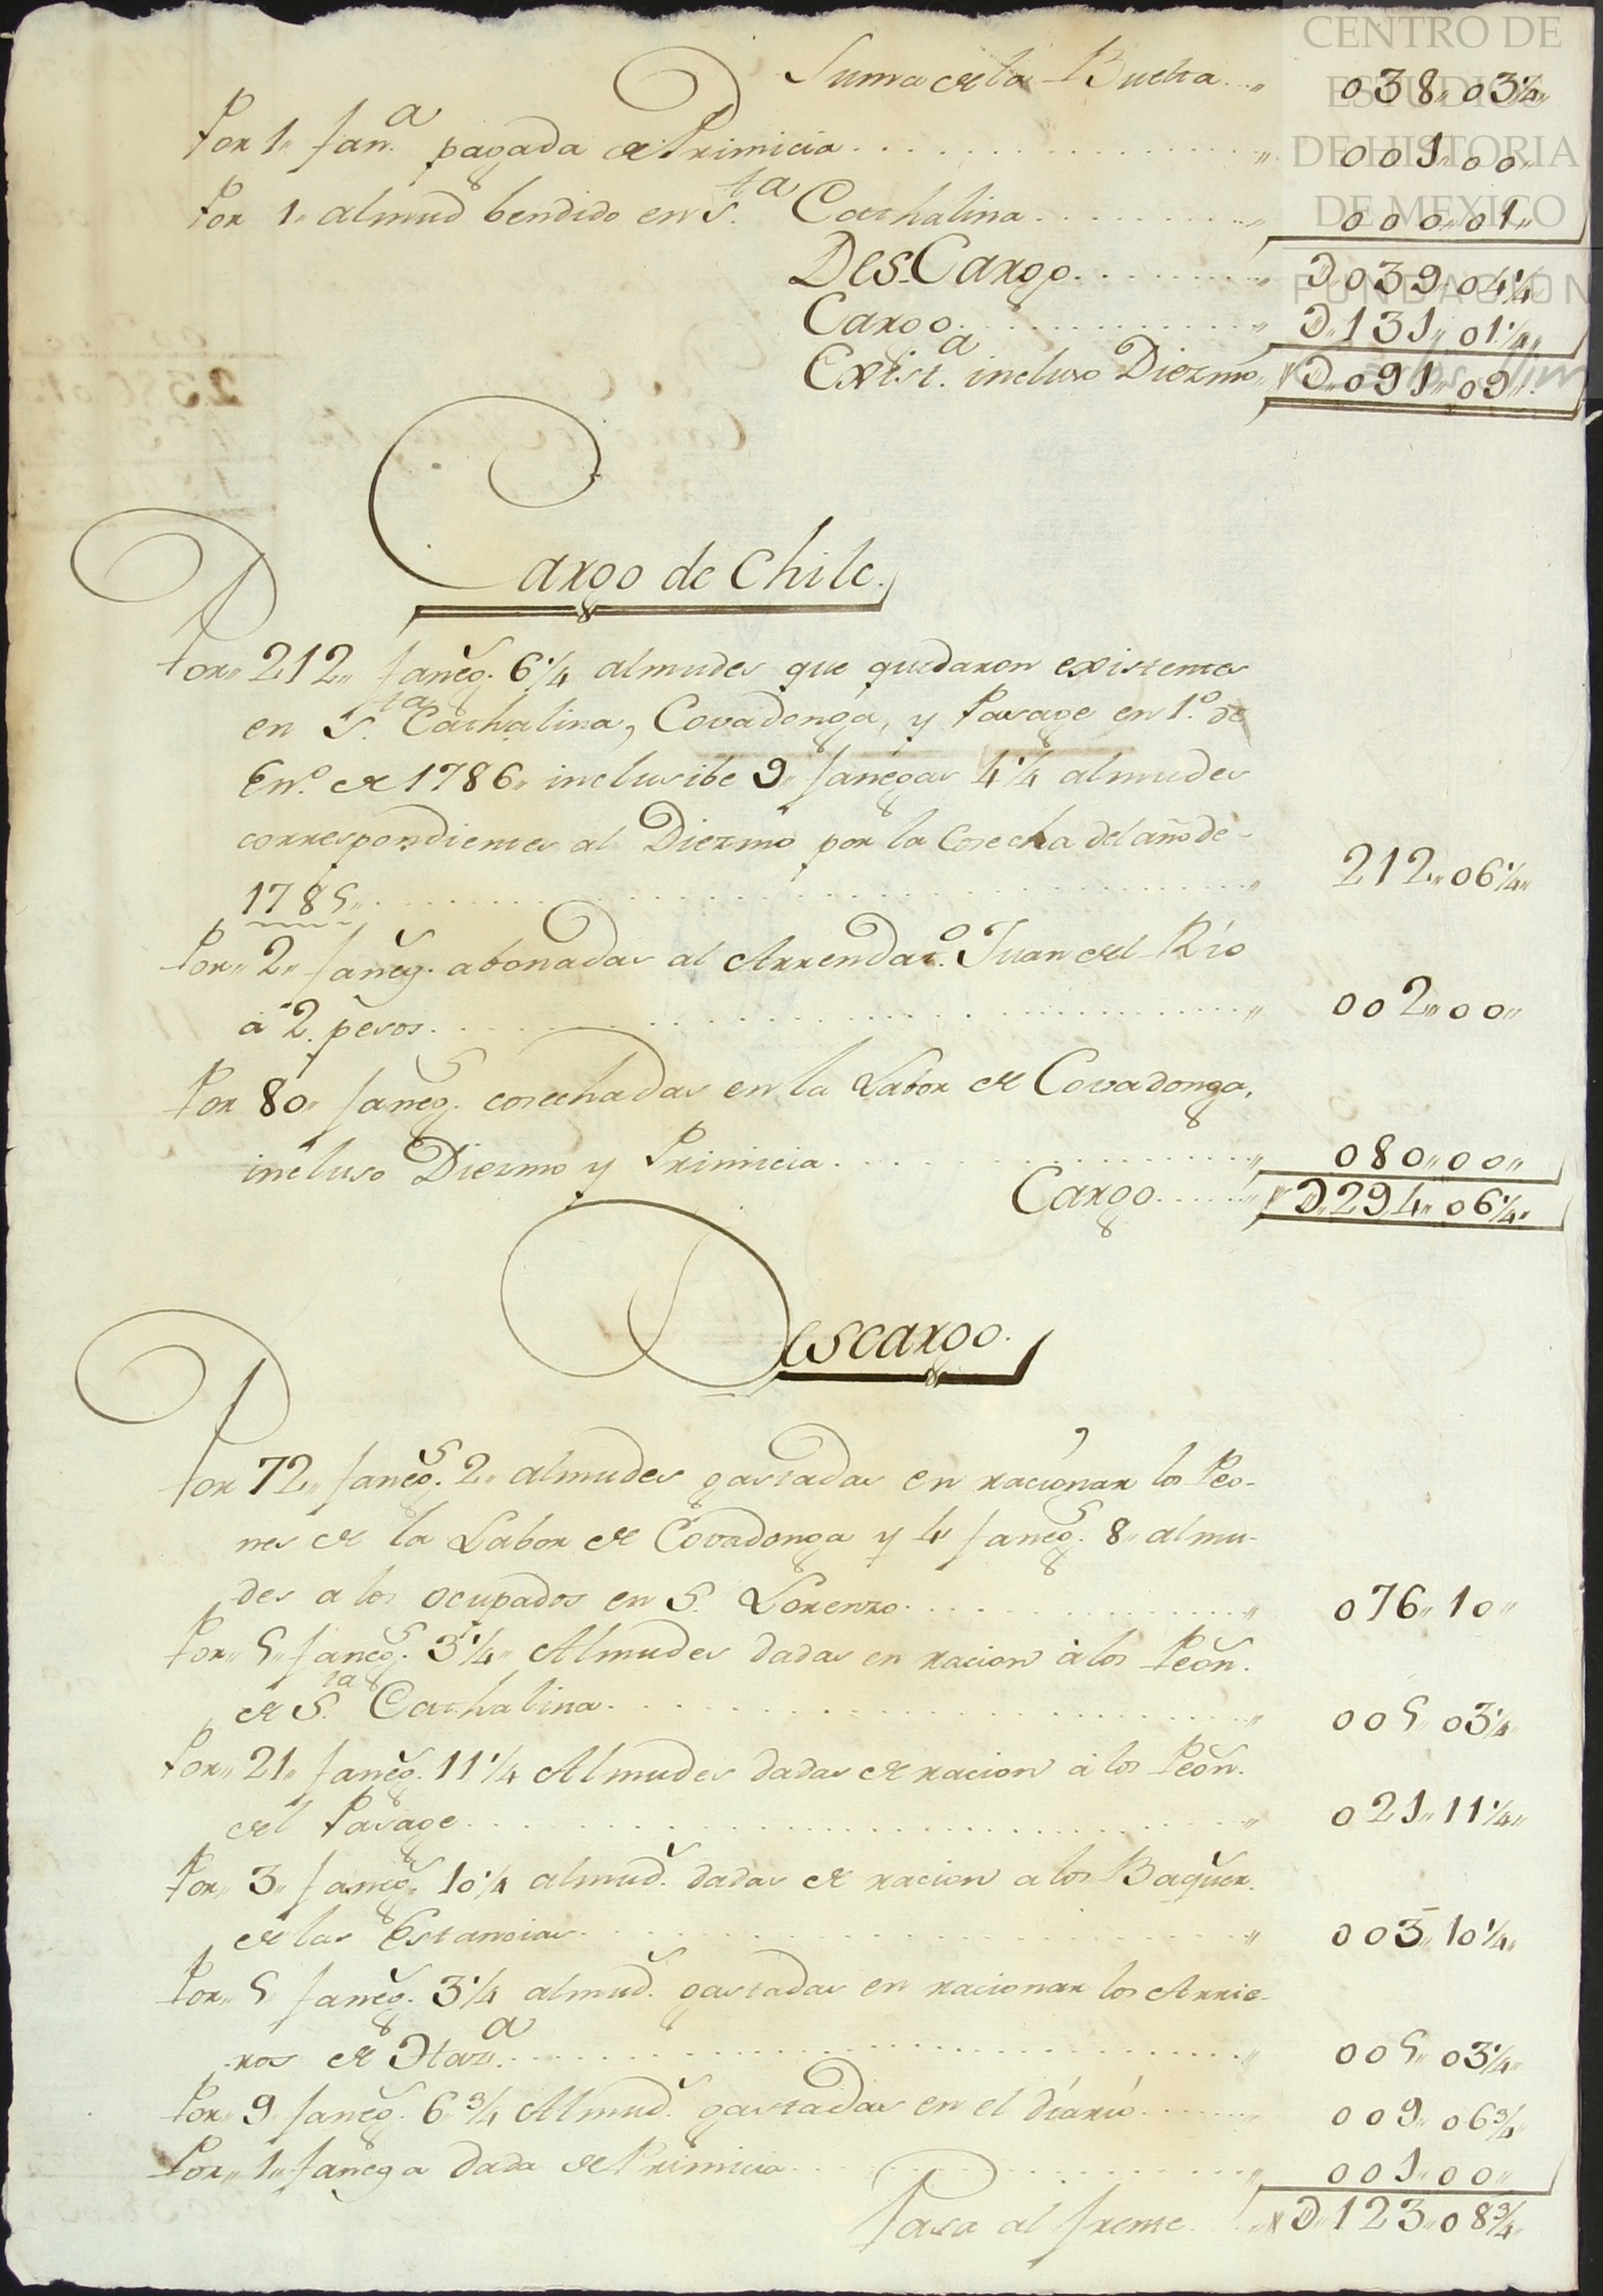 CENTRO DE
ESTUDIOS
DE HISTORIA
DE MEXICO
FUNDACION
Suma de la Buelta... 038,, 03¼,,
Por 1,, fan.ª pagada de Primicia... 001,, 00,,
Por 1,, almud bendido en S.ta Cathalina... 000,, 01,,
DesCargo... D,, 039,, 04¼
Cargo... D,, 131,, 01¼,,
Exist.ª incluso Diezmo,, D,, 091,, 09,,
Cargo de Chile.
Por,, 212,, faneg.s 6¼ almudes que quedaron existentes
en S.ta Cathalina, Covadonga, y Pasage en 1.º de
En.º de 1786,, inclusibe 9,, fanegas 4¼ almudes
correspondientes al Diezmo por la Cosecha del año de
1785,,... 212,, 06¼,,
Por,, 2,, faneg.s abonadas al Arrendat.º Juan del Río
a 2. pesos... 002,, 00,,
Por 80,, faneg.s cosechadas en la Labor de Covadonga,
incluso Diezmo y Primicia... 080,, 00,,
Cargo... D,, 294,, 06¼,,
Descargo.
Por 72,, faneg.s 2,, almudes gastadas en racionar los Peo-
nes de la Labor de Covadonga y 4 faneg.s 8,, almu-
des a los ocupados en S. Lorenzo... 076,, 10,,
Por,, 5,, faneg.s 3¼,, Almudes dadas en racion á los Peon.s
de S.ta Cathalina... 005,, 03¼
Por,, 21,, faneg.s 11¼ Almudes dadas de racion á los Peon.s
del Pasage... 021,, 11¼,,
Por,, 3,, faneg.s 10¼ almud.s dadas de racion a los Baquer.s
de las Estancias... 003,, 10¼,,
Por,, 5 faneg.s 3¼ almud.s gastadas en racionar los Arrie-
ros de Haz.ª... 005,, 03¼,,
Por,, 9 faneg.s 6¾ Almud.s gastadas en el diario... 009,, 06¾,,
Por,, 1,, fanega dada de Primicia... 001,, 00,,
Pasa al frente... D,, 123,, 08¾,,